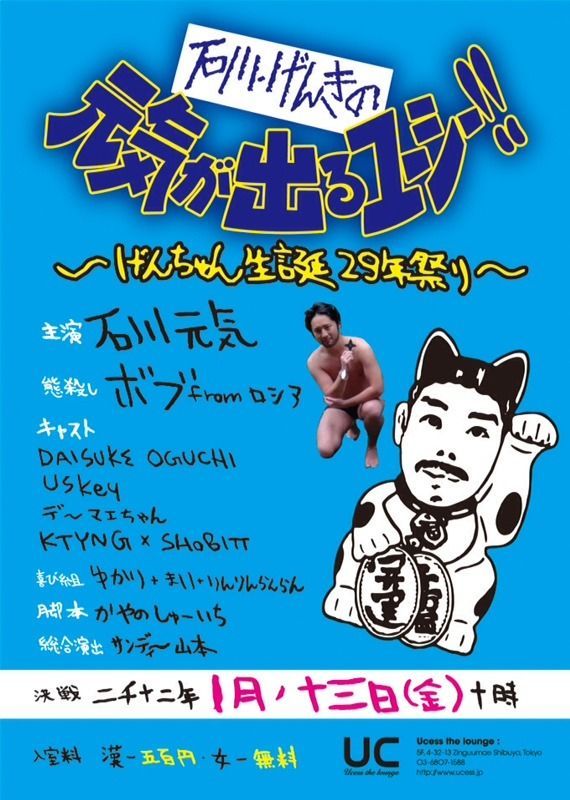 石川げんきの
元気が出るユーシー!!
〜げんちゃん生誕29年祭り〜
主演 石川元気
態殺し ボブ from ロシア
キャスト
DAISUKE OGUCHI
USKey
デ〜マエちゃん
KTYNG × SHOBITT
喜び組 ゆかり+まい+りんりんらんらん
脚本 かやのしゃーいち
総合演出 サンディー山本
決戦 二千十二年 1月ノ十三日(金)十時
入室料 漢ー五百円・女ー無料
UC
Ucess the lounge
Ucess the lounge :
5F, 4-32-13 Zinguumae Shibuya, Tokyo
03-6807-1588
http://www.ucess.jp